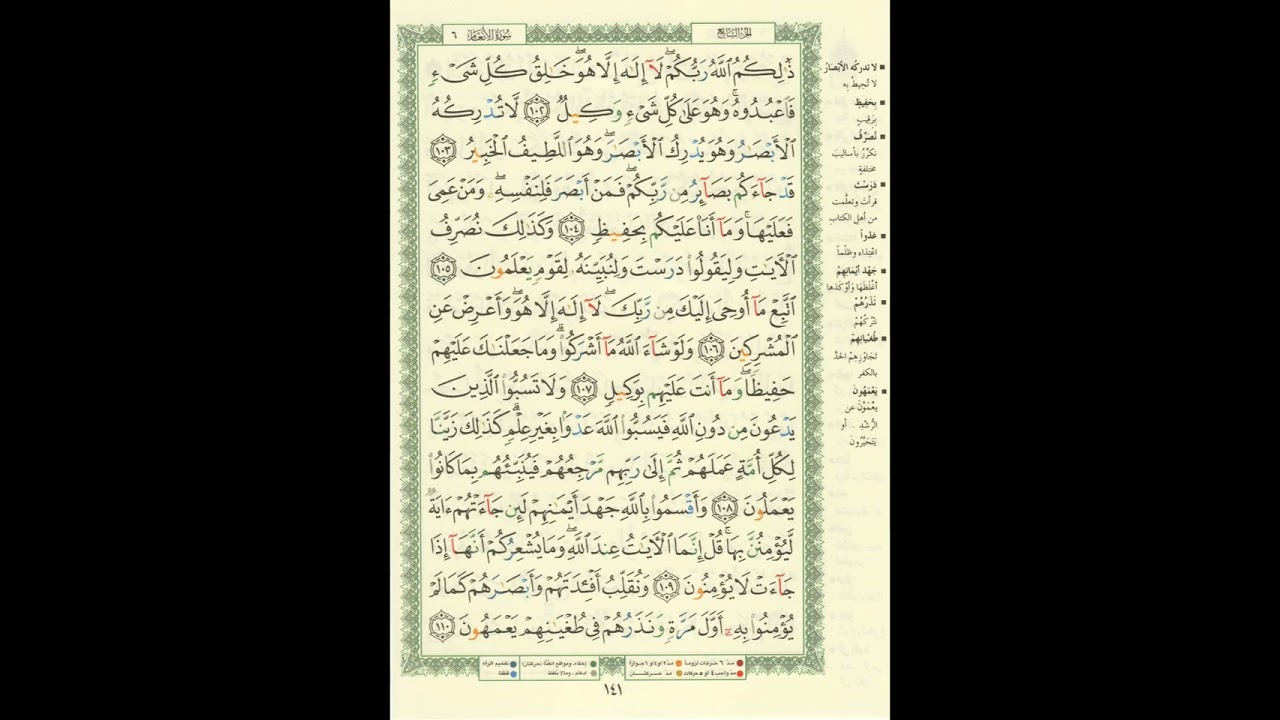 الجزء السابع
سورة الأنعام ٦
ذَٰلِكُمُ ٱللَّهُ رَبُّكُمْ ۖ لَآ إِلَٰهَ إِلَّا هُوَ ۖ خَٰلِقُ كُلِّ شَىْءٍ
فَٱعْبُدُوهُ ۚ وَهُوَ عَلَىٰ كُلِّ شَىْءٍ وَكِيلٌ ١٠٢ لَّا تُدْرِكُهُ
ٱلْأَبْصَٰرُ وَهُوَ يُدْرِكُ ٱلْأَبْصَٰرَ ۖ وَهُوَ ٱللَّطِيفُ ٱلْخَبِيرُ ١٠٣
قَدْ جَآءَكُم بَصَآئِرُ مِن رَّبِّكُمْ ۖ فَمَنْ أَبْصَرَ فَلِنَفْسِهِۦ ۖ وَمَنْ عَمِىَ
فَعَلَيْهَا ۚ وَمَآ أَنَا۠ عَلَيْكُم بِحَفِيظٍ ١٠٤ وَكَذَٰلِكَ نُصَرِّفُ
ٱلْءَايَٰتِ وَلِيَقُولُوا۟ دَرَسْتَ وَلِنُبَيِّنَهُۥ لِقَوْمٍ يَعْلَمُونَ ١٠٥
ٱتَّبِعْ مَآ أُوحِىَ إِلَيْكَ مِن رَّبِّكَ ۖ لَآ إِلَٰهَ إِلَّا هُوَ ۖ وَأَعْرِضْ عَنِ
ٱلْمُشْرِكِينَ ١٠٦ وَلَوْ شَآءَ ٱللَّهُ مَآ أَشْرَكُوا۟ ۗ وَمَا جَعَلْنَٰكَ عَلَيْهِمْ
حَفِيظًا ۖ وَمَآ أَنتَ عَلَيْهِم بِوَكِيلٍ ١٠٧ وَلَا تَسُبُّوا۟ ٱلَّذِينَ
يَدْعُونَ مِن دُونِ ٱللَّهِ فَيَسُبُّوا۟ ٱللَّهَ عَدْوًۢا بِغَيْرِ عِلْمٍ ۗ كَذَٰلِكَ زَيَّنَّا
لِكُلِّ أُمَّةٍ عَمَلَهُمْ ثُمَّ إِلَىٰ رَبِّهِم مَّرْجِعُهُمْ فَيُنَبِّئُهُم بِمَا كَانُوا۟
يَعْمَلُونَ ١٠٨ وَأَقْسَمُوا۟ بِٱللَّهِ جَهْدَ أَيْمَٰنِهِمْ لَئِن جَآءَتْهُمْ ءَايَةٌ
لَّيُؤْمِنُنَّ بِهَا ۚ قُلْ إِنَّمَا ٱلْءَايَٰتُ عِندَ ٱللَّهِ ۖ وَمَا يُشْعِرُكُمْ أَنَّهَآ إِذَا
جَآءَتْ لَا يُؤْمِنُونَ ١٠٩ وَنُقَلِّبُ أَفْـِٔدَتَهُمْ وَأَبْصَٰرَهُمْ كَمَا لَمْ
يُؤْمِنُوا۟ بِهِۦٓ أَوَّلَ مَرَّةٍ وَنَذَرُهُمْ فِى طُغْيَٰنِهِمْ يَعْمَهُونَ ١١٠
لا تدركه الأبصار
لا تحيط به
بحفيظ
برقيب
نصرف
نكرر بأساليب
مختلفة
درست
قرأت وتعلمت
من أهل الكتاب
عدوا
اعتداء وظلما
جهد أيمانهم
أغلظها وأوكدها
نذرهم
نتركهم
طغيانهم
تجاوزهم الحد
بالكفر
يعمهون
يعمون عن
الرشد . أو
يتحيرون
مد ٦ حركات لزوما مد ٢ أو ٤ أو ٦ جوازا إخفاء، ومواقع الغنة (حركتان) تفخيم الراء
مد واجب ٤ أو ٥ حركات مد حركتان إدغام، وما لا يلفظ قلقلة
١٤١